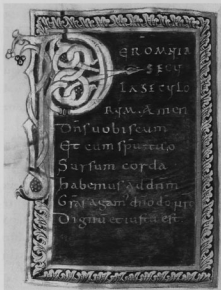 PEROMNIA
SECU
LASECULO
RUM. Amen
Dnsuobiscum
Et cum spu tuo
Sursum corda
habemus ad dnm
Gras agam dno do nro
Dignu et iustu est